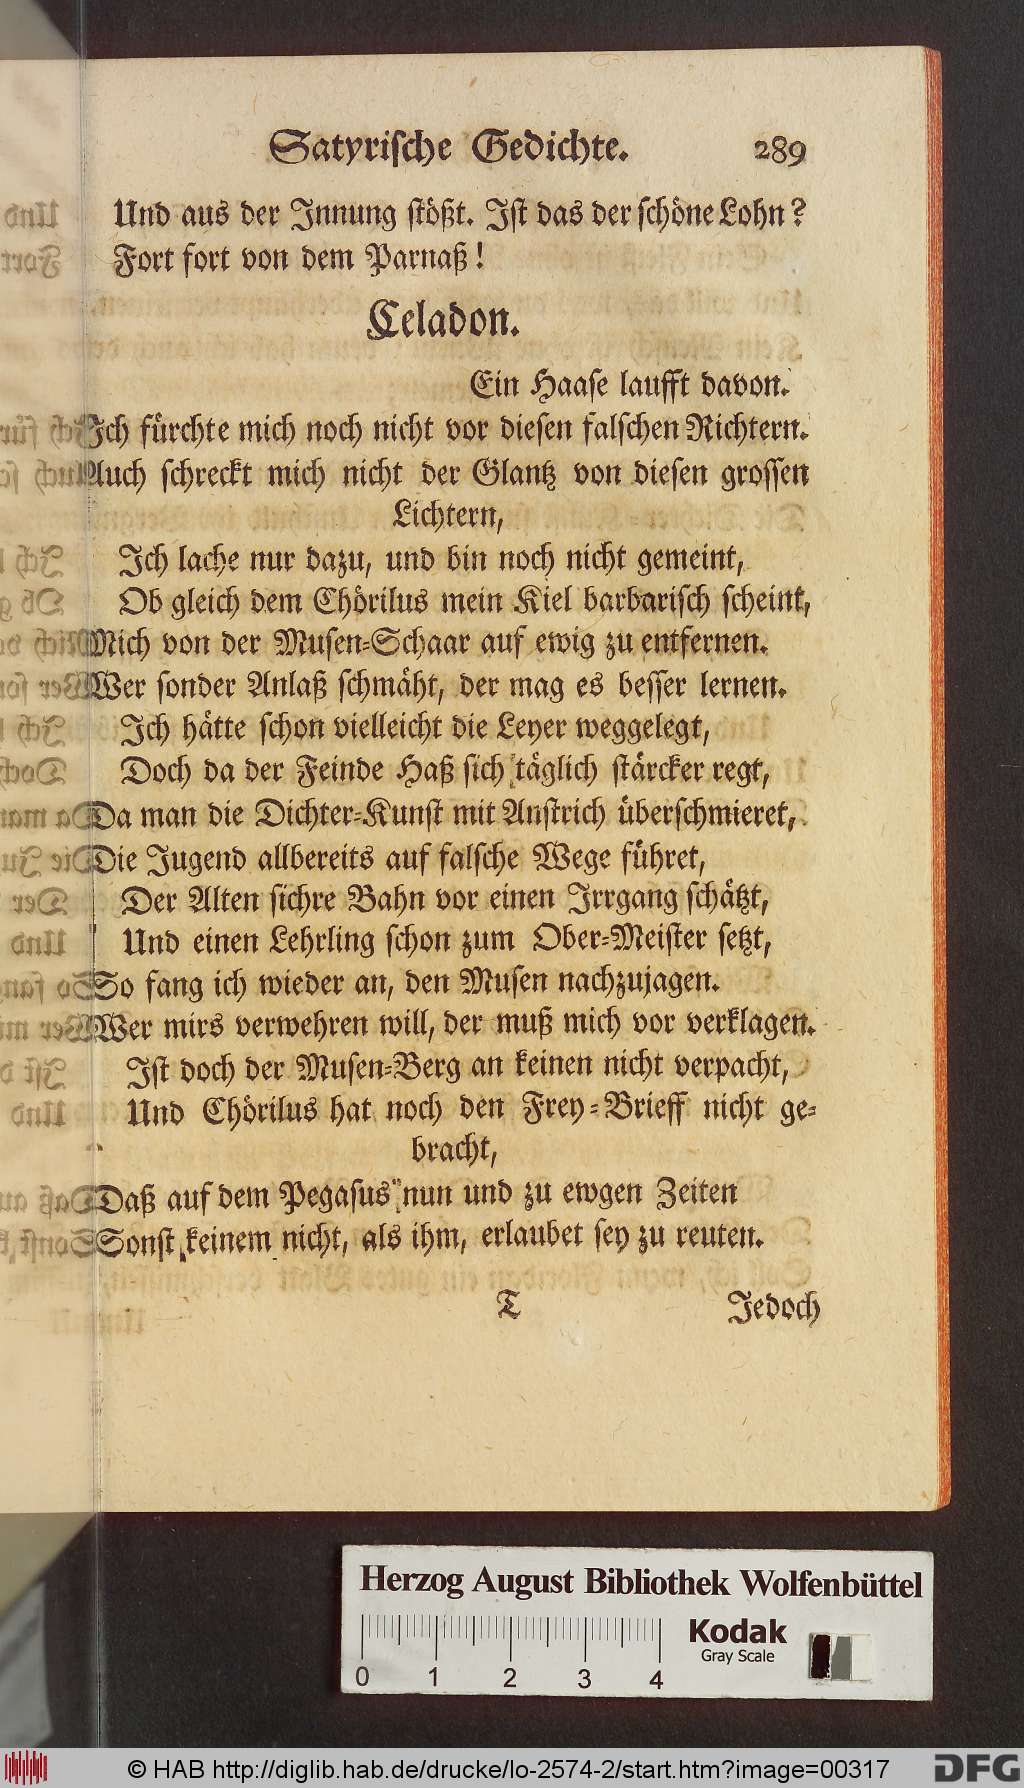 Satyrische Gedichte. 289
Und aus der Innung stößt. Ist das der schöne Lohn?
Fort fort von dem Parnaß!
Celadon.
Ein Haase laufft davon.
Ich fürchte mich noch nicht vor diesen falschen Richtern.
Auch schreckt mich nicht der Glantz von diesen grossen
Lichtern,
Ich lache nur dazu, und bin noch nicht gemeint,
Ob gleich dem Chörilus mein Kiel barbarisch scheint,
Mich von der Musen-Schaar auf ewig zu entfernen.
Wer sonder Anlaß schmäht, der mag es besser lernen.
Ich hätte schon vielleicht die Leyer weggelegt,
Doch da der Feinde Haß sich täglich stärcker regt,
Da man die Dichter-Kunst mit Anstrich überschmieret,
Die Jugend allbereits auf falsche Wege führet,
Der Alten sichre Bahn vor einen Irrgang schätzt,
Und einen Lehrling schon zum Ober-Meister setzt,
So fang ich wieder an, den Musen nachzujagen.
Wer mirs verwehren will, der muß mich vor verklagen.
Ist doch der Musen-Berg an keinen nicht verpacht,
Und Chörilus hat noch den Frey-Brieff nicht ge-
bracht,
Daß auf dem Pegasus nun und zu ewgen Zeiten
Sonst keinem nicht, als ihm, erlaubet sey zu reuten.
T Jedoch
Herzog August Bibliothek Wolfenbüttel
Kodak
Gray Scale
0 1 2 3 4
© HAB http://diglib.hab.de/drucke/lo-2574-2/start.htm?image=00317
DFG